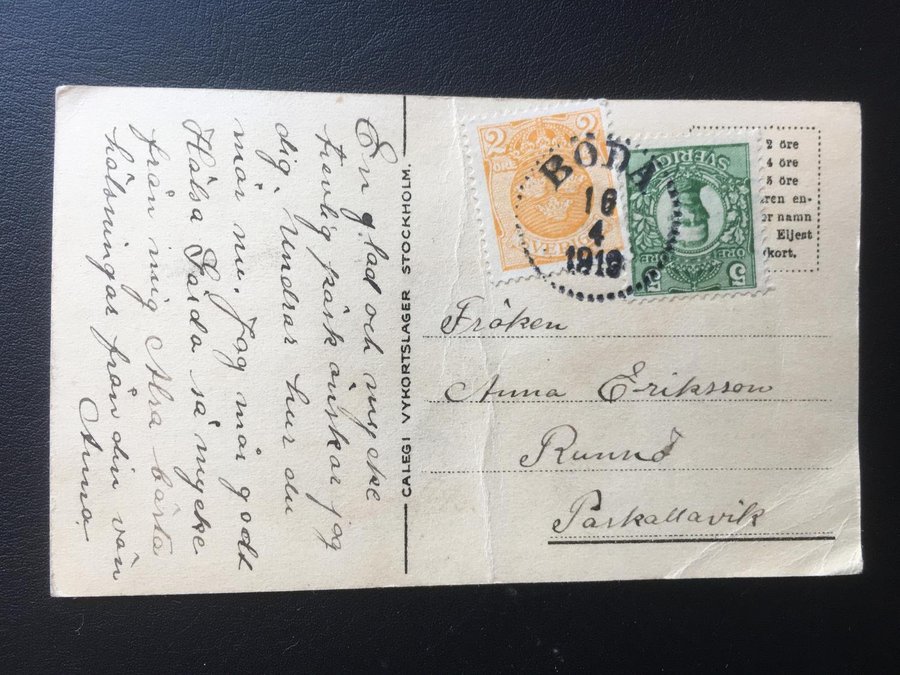 En glad och mycke
trevlig påsk önskar jag
dig, Undrar hur du
mår nu. Jag mår godt
Hälsa Frida så mycke
från mig Mina bästa
hälsningar från din vän
Anna.
CALEGI VYKORTSLAGER STOCKHOLM.
2 2
ÖRE
SVERIGE
BODA
16
4
1919
SVERIGE
ÖRE
5
2 öre
4 öre
5 öre
ren en-
r namn
Eljest
kort.
Fröken
Anna Eriksson
Runnö
Påskallavik